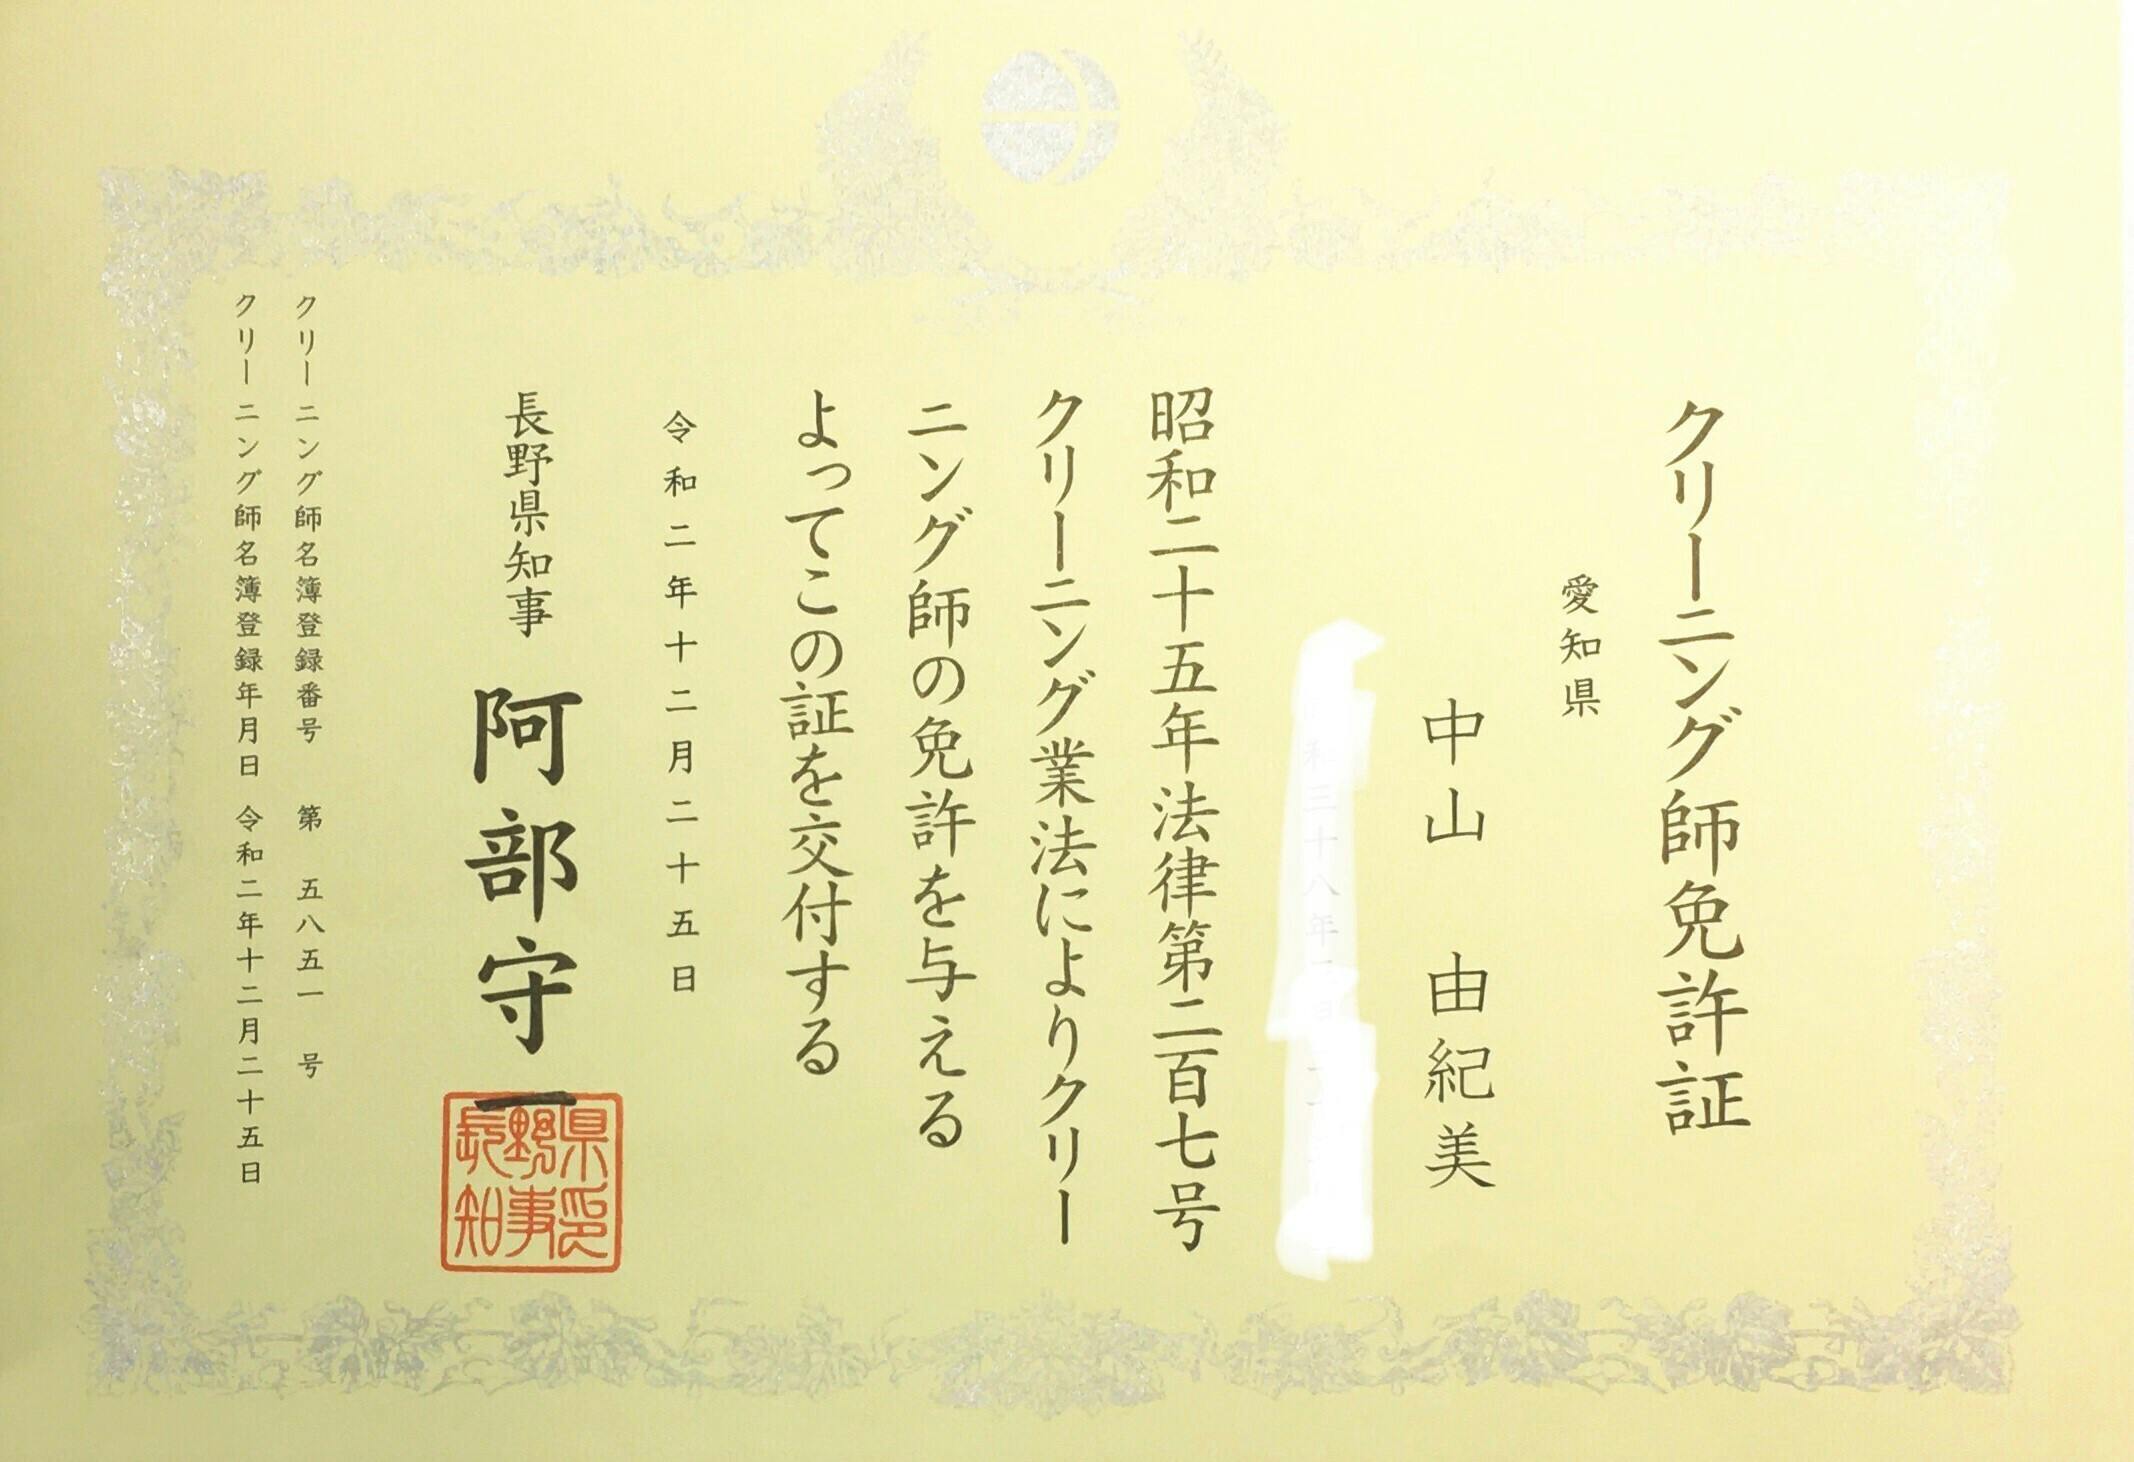 クリーニング師免許証
愛知県
中山 由紀美
昭和二十五年法律第二百七号
クリーニング業法によりクリー
ニング師の免許を与える
よってこの証を交付する
令和二年十二月二十五日
長野県知事 阿部守一
長野県知事印
クリーニング師名簿登録番号 第 五八五一 号
クリーニング師名簿登録年月日 令和二年十二月二十五日